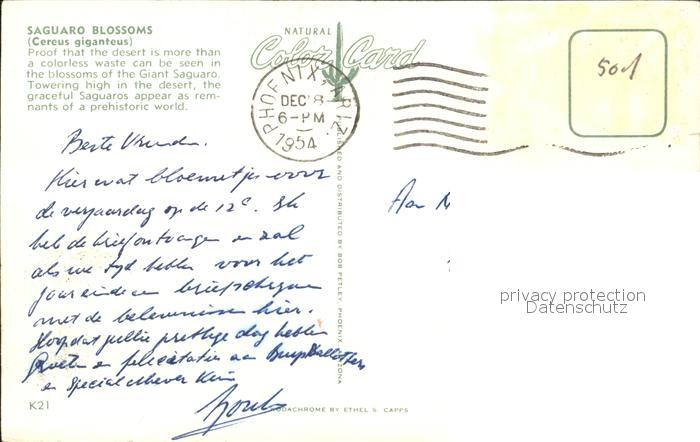 SAGUARO BLOSSOMS
(Cereus giganteus)
Proof that the desert is more than
a colorless waste can be seen in
the blossoms of the Giant Saguaro.
Towering high in the desert, the
graceful Saguaros appear as rem-
nants of a prehistoric world.
NATURAL
Color Card
PHOENIX, ARIZ.
DEC 8
6-PM
1954
Beste Vrienden.
Hier wat bloemetjes voor
de verjaardag op de 12e. Ik
heb de brief ontvangen en zal
als we tijd hebben voor het
jaareinde een brief schrijven
met de belevenissen hier.
Hoop dat jullie prettige dag hebben
Groeten en felicitaties aan
en Speciaal
K21
KODACHROME BY ETHEL S. CAPPS
PUBLISHED AND DISTRIBUTED BY BOB PETLEY, PHOENIX, ARIZONA
Aan
50 1
privacy protection
Datenschutz